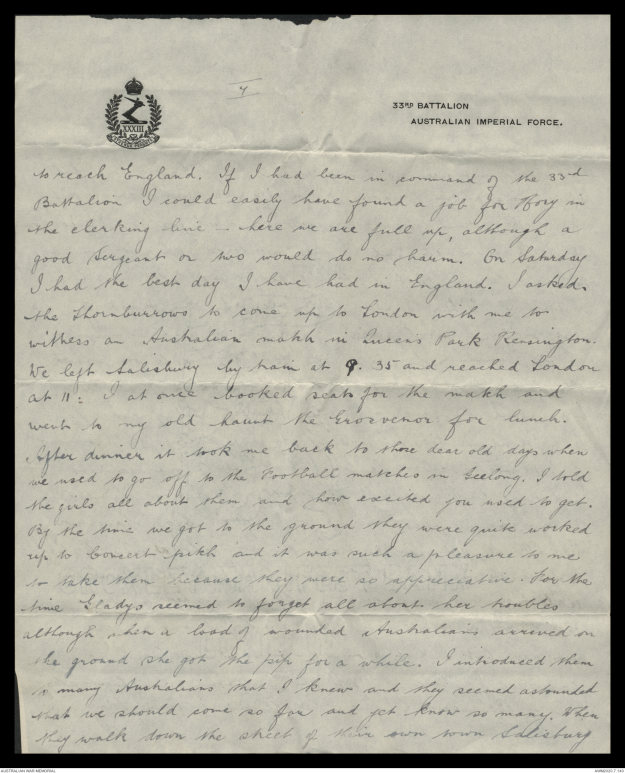 4
33RD BATTALION
AUSTRALIAN IMPERIAL FORCE.
XXXIII
to reach England. If I had been in command of the 33rd
Battalion I could easily have found a job for Rory in
the clerking line — here we are full up, although a
good Sergeant or two would do no harm. On Saturday
I had the best day I have had in England. I asked
the Thornburrows to come up to London with me to
witness an Australian match in Queens Park Kensington.
We left Salisbury by train at 9.35 and reached London
at 11: I at once booked seats for the match and
went to my old haunt the Grosvenor for lunch.
After dinner it took me back to those dear old days when
we used to go off to the Football matches in Geelong. I told
the girls all about them and how excited you used to get.
By the time we got to the ground they were quite worked
up to Concert pitch and it was such a pleasure to me
to take them because they were so appreciative. For the
time Gladys seemed to forget all about her troubles
although when a load of wounded Australians arrived on
the ground she got the pip for a while. I introduced them
to many Australians that I knew and they seemed astounded
that we should come so far and yet know so many. When
they walk down the street of their own town Salisbury
AUSTRALIAN WAR MEMORIAL